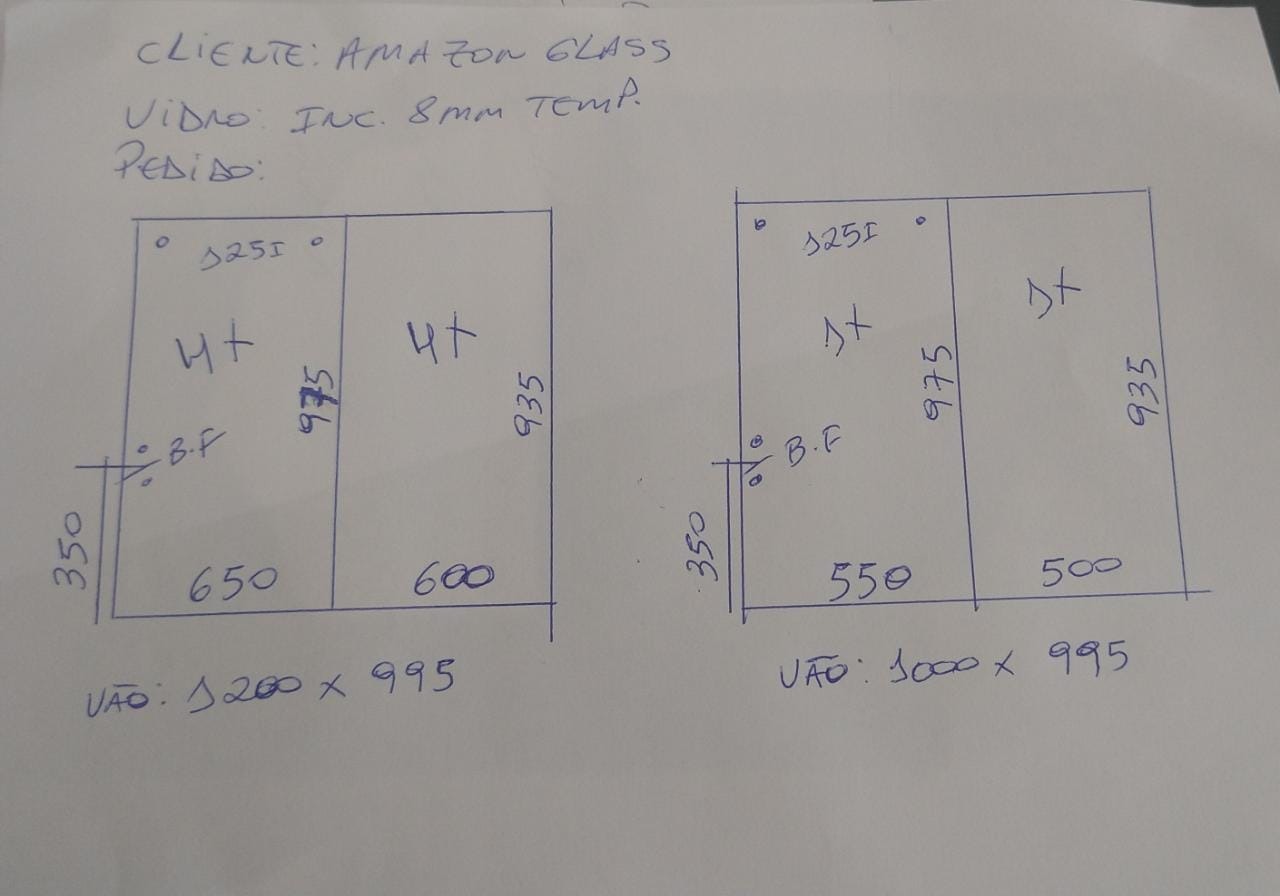 CLIENTE: AMAZON GLASS
VIDRO: INC. 8MM TEMP.
PEDIDO:
125I
4+
4+
975
935
B.F
350
650
600
VÃO: 1200 x 995
125I
1+
1+
975
935
B.F
350
550
500
VÃO: 1000 x 995